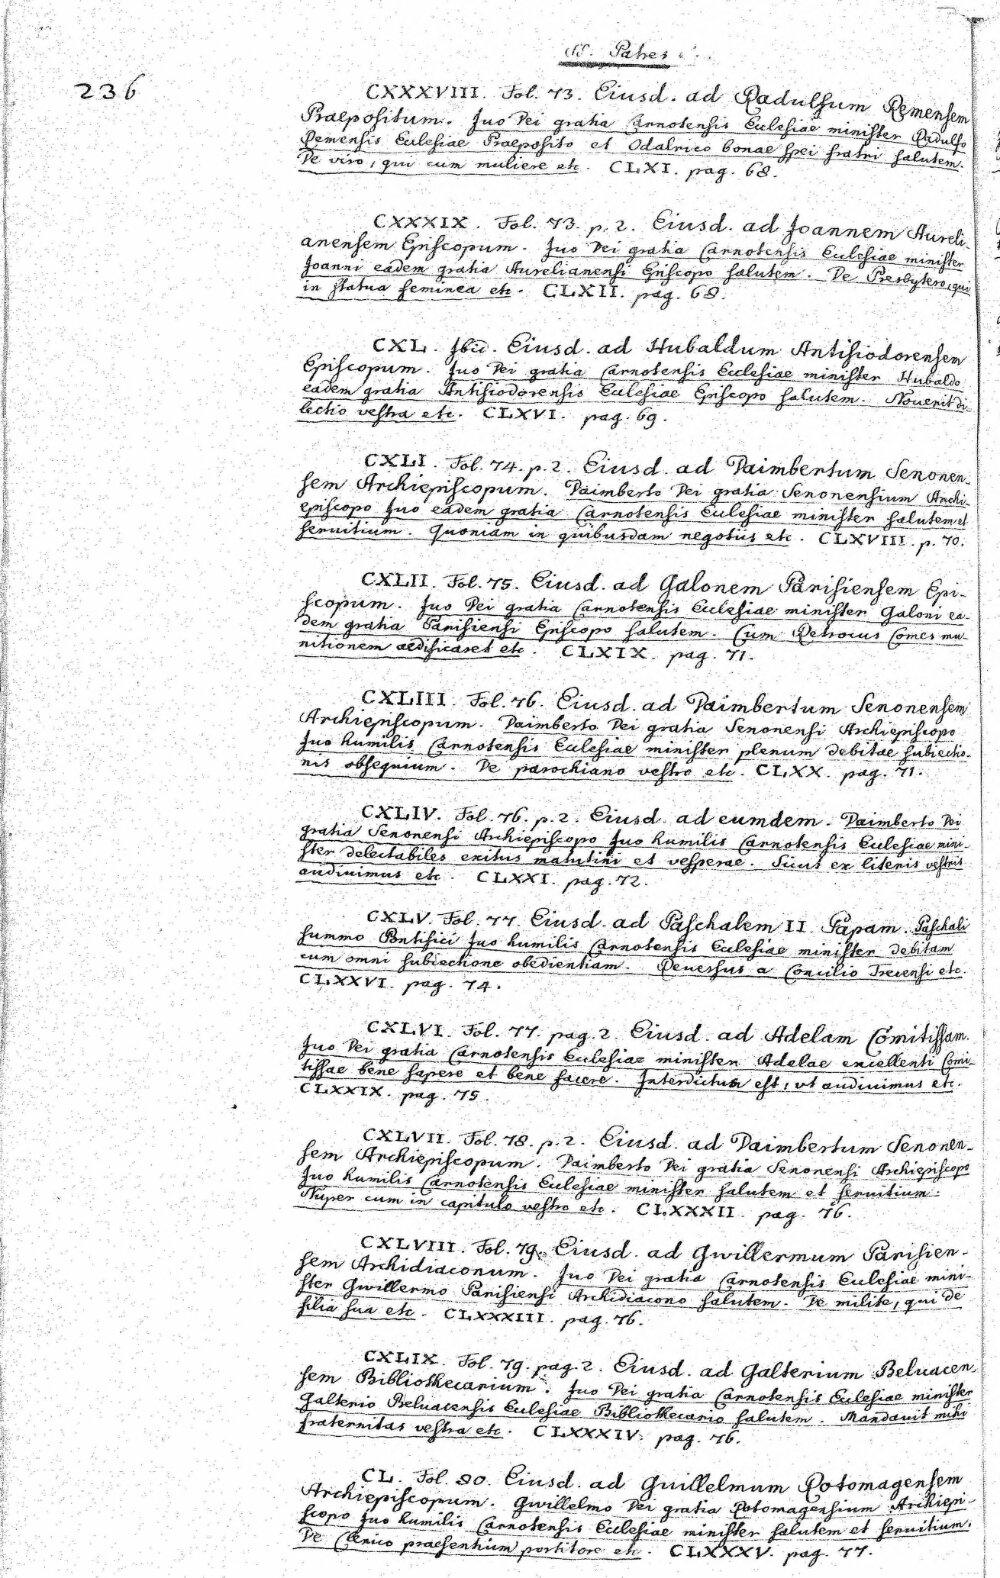 SS. Patres
236
CXXXVIII. Fol. 73. Eiusd. ad Radulfum Remensem
Praepositum. Juo Dei gratia Carnotensis Ecclesiae minister Radulfo
Remensis Ecclesiae Praeposito et Odalrico bonae spei fratri salutem.
De viro, qui cum muliere etc. CLXI. pag. 68.
CXXXIX. Fol. 73. p. 2. Eiusd. ad Joannem Aureli-
anensem Episcopum. Juo Dei gratia Carnotensis Ecclesiae minister
Joanni eadem gratia Aurelianensi Episcopo salutem. De Presbytero, qui
in statua feminea etc. CLXII. pag. 68.
CXL. Ibid. Eiusd. ad Hubaldum Antisiodorensem
Episcopum. Juo Dei gratia Carnotensis Ecclesiae minister Hubaldo
eadem gratia Antisiodorensis Ecclesiae Episcopo salutem. Nouerit di-
lectio vestra etc. CLXVI. pag. 69.
CXLI. Fol. 74. p. 2. Eiusd. ad Daimbertum Senonen-
sem Archiepiscopum. Daimberto Dei gratia Senonensium Archi-
episcopo Juo eadem gratia Carnotensis Ecclesiae minister salutem et
seruitium. Quoniam in quibusdam negotiis etc. CLXVIII. p. 70.
CXLII. Fol. 75. Eiusd. ad Galonem Parisiensem Epi-
scopum. Juo Dei gratia Carnotensis Ecclesiae minister Galoni ea-
dem gratia Parisiensi Episcopo salutem. Cum Rotrocus Comes mu-
nitionem aedificaret etc. CLXIX. pag. 71.
CXLIII. Fol. 76. Eiusd. ad Daimbertum Senonensem
Archiepiscopum. Daimberto Dei gratia Senonensi Archiepiscopo
Juo humilis Carnotensis Ecclesiae minister plenum debitae subiectio-
nis obsequium. De parochiano vestro etc. CLXX. pag. 71.
CXLIV. Fol. 76. p. 2. Eiusd. ad eumdem. Daimberto Dei
gratia Senonensi Archiepiscopo Juo humilis Carnotensis Ecclesiae mini-
ster delectabiles exitus matutini et vesperae. Sicut ex literis vestris
audiuimus etc. CLXXI. pag. 72.
CXLV. Fol. 77. Eiusd. ad Paschalem II. Papam. Paschali
summo Pontifici Juo humilis Carnotensis Ecclesiae minister debitam
cum omni subiectione obedientiam. Reuersus a Concilio Trecensi etc.
CLXXVI. pag. 74.
CXLVI. Fol. 77. pag. 2. Eiusd. ad Adelam Comitissam.
Juo Dei gratia Carnotensis Ecclesiae minister Adelae excellenti Comi-
tissae bene sapere et bene facere. Interdictum est, ut audiuimus etc.
CLXXIX. pag. 75.
CXLVII. Fol. 78. p. 2. Eiusd. ad Daimbertum Senonen-
sem Archiepiscopum. Daimberto Dei gratia Senonensi Archiepiscopo
Juo humilis Carnotensis Ecclesiae minister salutem et seruitium.
Nuper cum in capitulo vestro etc. CLXXXII. pag. 76.
CXLVIII. Fol. 79. Eiusd. ad Gwillermum Parisien-
sem Archidiaconum. Juo Dei gratia Carnotensis Ecclesiae mini-
ster Gwillermo Parisiensi Archidiacono salutem. De milite, qui de
filia sua etc. CLXXXIII. pag. 76.
CXLIX. Fol. 79. pag. 2. Eiusd. ad Galterium Beluacen-
sem Bibliothecarium. Juo Dei gratia Carnotensis Ecclesiae minister
Galterio Beluacensis Ecclesiae Bibliothecario salutem. Mandauit mihi
fraternitas vestra etc. CLXXXIV. pag. 76.
CL. Fol. 80. Eiusd. ad Guillelmum Rotomagensem
Archiepiscopum. Gwillelmo Dei gratia Rotomagensium Archiepi-
scopo Juo humilis Carnotensis Ecclesiae minister salutem et seruitium.
De Clerico praesentium portitore etc. CLXXXV. pag. 77.